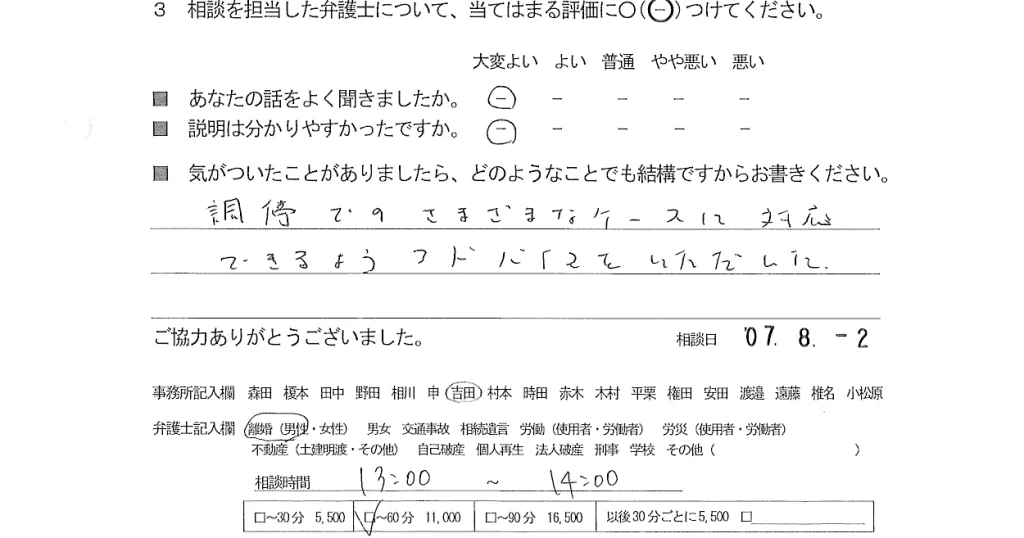 3 相談を担当した弁護士について、当てはまる評価に○(㊀)つけてください。
大変よい よい 普通 やや悪い 悪い
■ あなたの話をよく聞きましたか。 － － － － －
■ 説明は分かりやすかったですか。 － － － － －
■ 気がついたことがありましたら、どのようなことでも結構ですからお書きください。
調停でのさまざまなケースに対応
できるようアドバイスをいただいた.
ご協力ありがとうございました。 相談日 '07. 8. -2
事務所記入欄 森田 榎本 田中 野田 相川 申 吉田 村本 時田 赤木 木村 平栗 権田 安田 渡邉 遠藤 椎名 小松原
弁護士記入欄 離婚（男性・女性） 男女 交通事故 相続遺言 労働（使用者・労働者） 労災（使用者・労働者）
不動産（土建明渡・その他） 自己破産 個人再生 法人破産 刑事 学校 その他（ ）
相談時間 13:00 ~ 14:00
□～30分 5,500 □～60分 11,000 □～90分 16,500 以後30分ごとに5,500 □